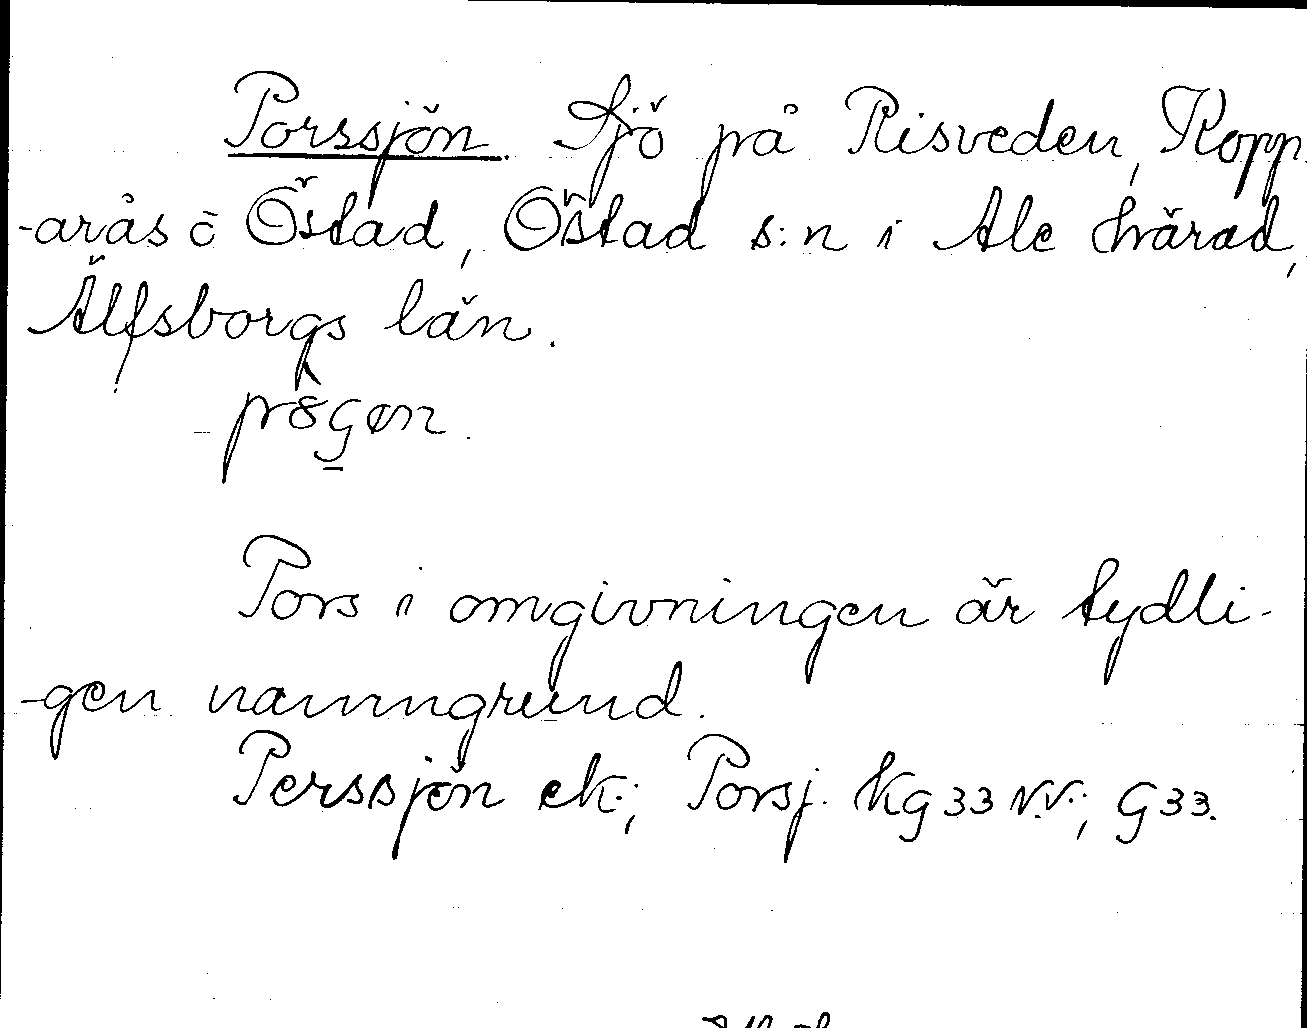 Porssjön. Sjö på Risveden, Kopp-
-arås o Östad, Östad s:n i Ale härad,
Älfsborgs län.
Pors i omgivningen är tydli-
-gen namngrund.
Perssjön ek.; Porsj. Kg 33 NV.; G 33.